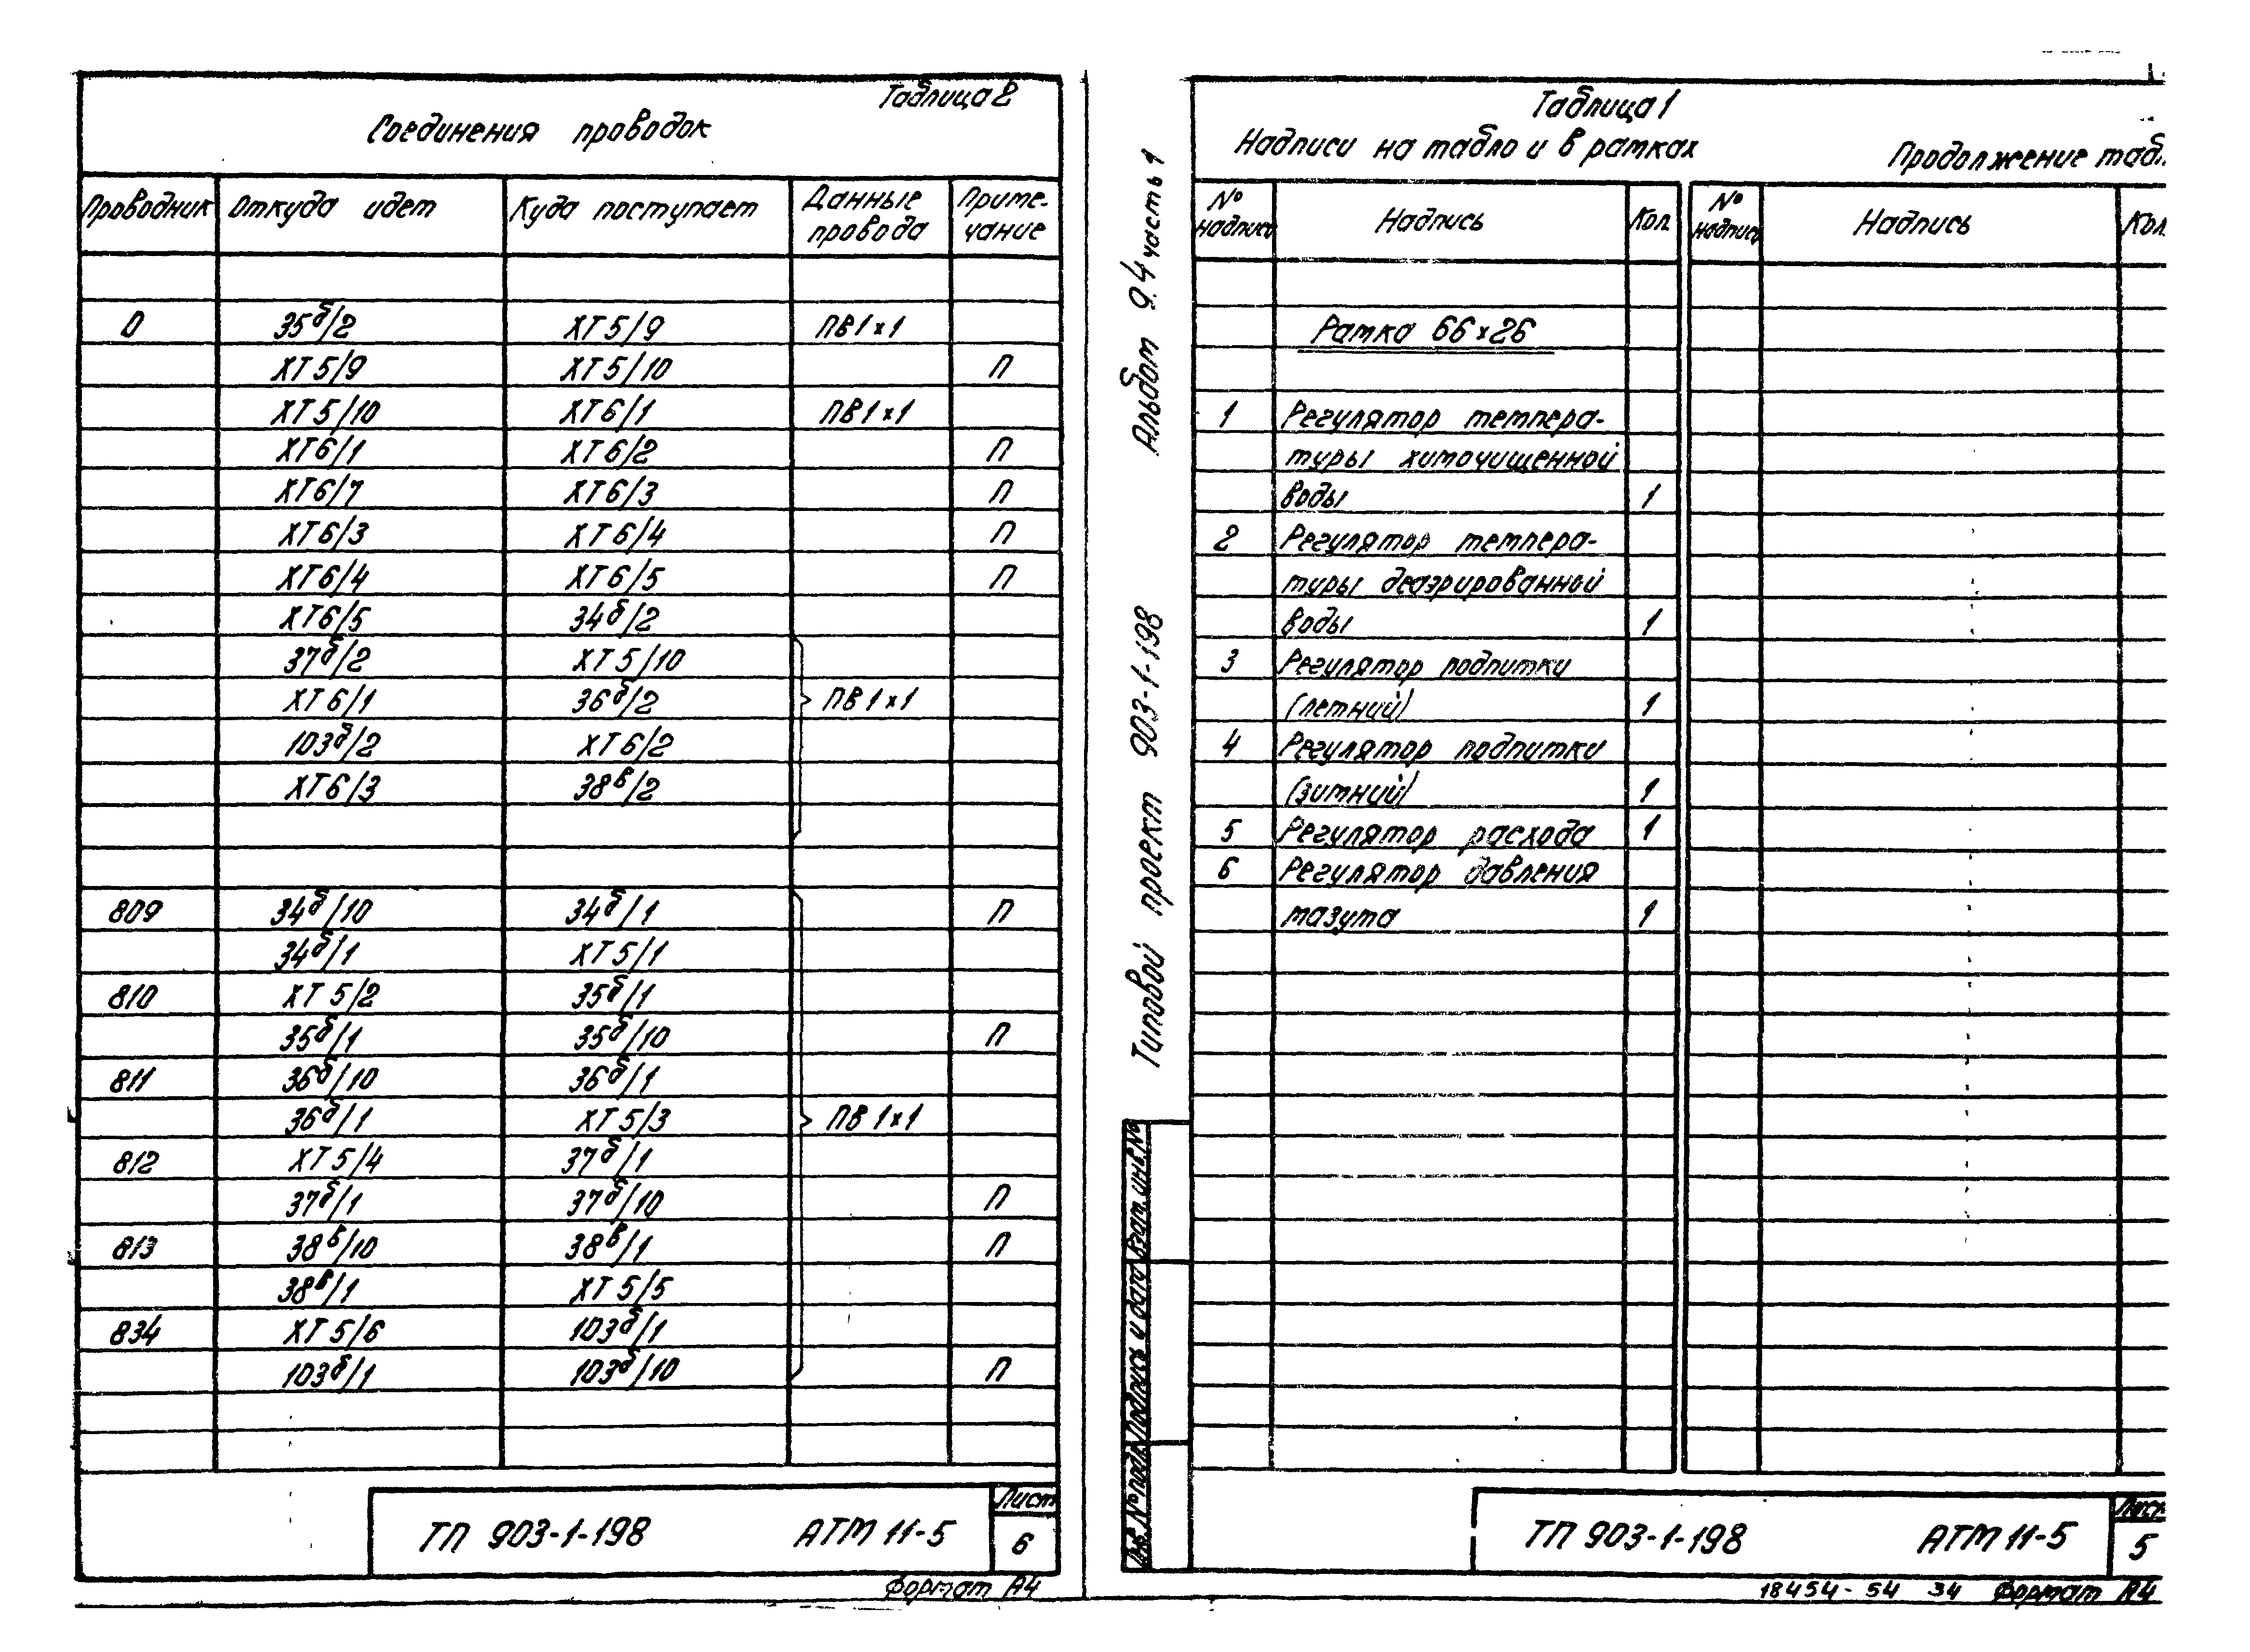 Таблица 2
Соединения проводок
Проводник Откуда идет Куда поступает Данные провода Приме-чание
0 35б/2 ХТ5/9 ПВ1х1
ХТ5/9 ХТ5/10 П
ХТ5/10 ХТ6/1 ПВ1х1
ХТ6/1 ХТ6/2 П
ХТ6/7 ХТ6/3 П
ХТ6/3 ХТ6/4 П
ХТ6/4 ХТ6/5 П
ХТ6/5 34б/2
37б/2 ХТ5/10
ХТ6/1 36б/2 ПВ1х1
103б/2 ХТ6/2
ХТ6/3 38в/2
809 34б/10 34б/1 П
34б/1 ХТ5/1
810 ХТ5/2 35б/1
35б/1 35б/10 П
811 36б/10 36б/1
36б/1 ХТ5/3 ПВ1х1
812 ХТ5/4 37б/1
37б/1 37б/10 П
813 38в/10 38в/1 П
38в/1 ХТ5/5
834 ХТ5/6 103б/1
103б/1 103б/10 П
ТП 903-1-198 АТМ 11-5
Лист
6
Формат А4
Типовой проект 903-1-198 Альбом 9.4 часть 1
Инв. № подл. Подпись и дата Взам. инв. №
Таблица 1
Надписи на табло и в рамках
Продолжение табл.
№ надписи Надпись Кол. № надписи Надпись Кол.
Рамка 66х26
1 Регулятор темпера-
туры химочищенной
воды 1
2 Регулятор темпера-
туры деаэрированной
воды 1
3 Регулятор подпитки
(летний) 1
4 Регулятор подпитки
(зимний) 1
5 Регулятор расхода 1
6 Регулятор давления
мазута 1
ТП 903-1-198 АТМ 11-5
Лист
5
18454-54 34 Формат А4